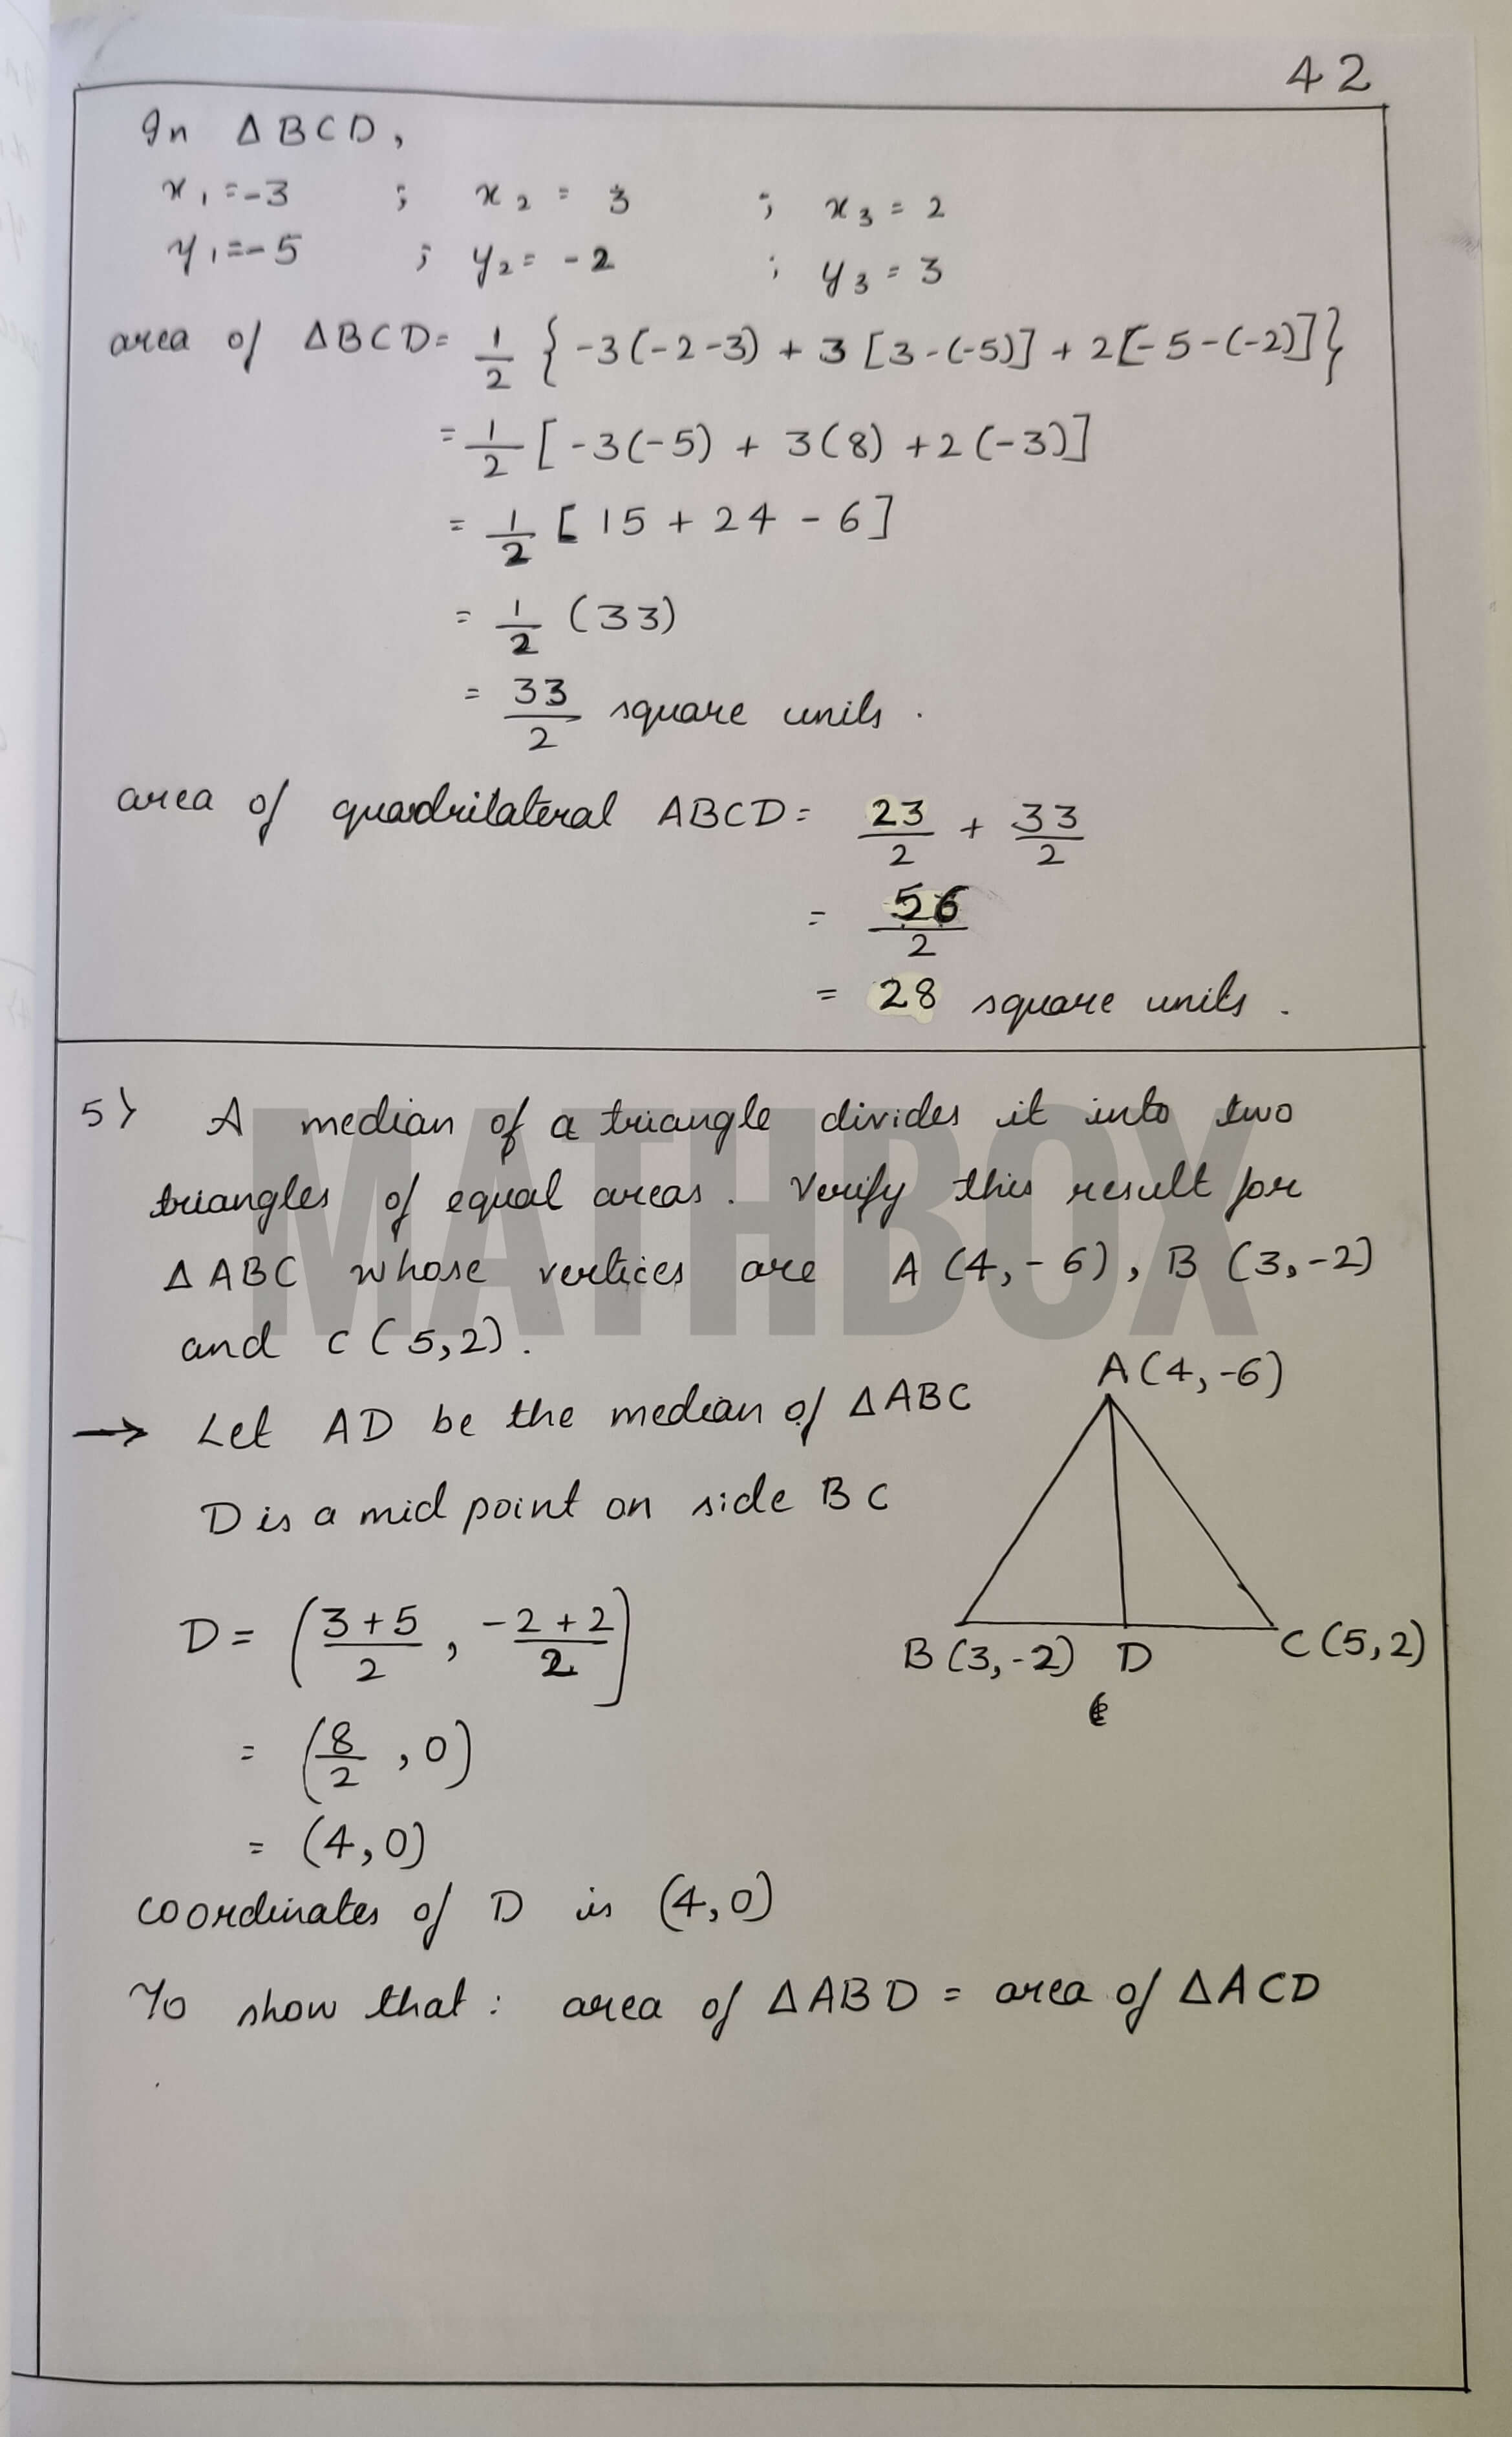 42
In ΔBCD,
x₁=-3 ; x₂ = 3 ; x₃ = 2
y₁=-5 ; y₂= -2 ; y₃ = 3
area of ΔBCD= 1/2 {-3(-2-3) + 3[3-(-5)] + 2[-5-(-2)]}
= 1/2 [-3(-5) + 3(8) +2(-3)]
= 1/2 [15 + 24 - 6]
= 1/2 (33)
= 33/2 square units.
area of quadrilateral ABCD= 23/2 + 33/2
= 56/2
= 28 square units.
MATHBOX
5) A median of a triangle divides it into two
triangles of equal areas. Verify this result for
ΔABC whose vertices are A (4,-6), B (3,-2)
and C (5,2).
→ Let AD be the median of ΔABC
D is a mid point on side BC
A(4,-6)
B(3,-2) D C(5,2)
D= (3+5/2, -2+2/2)
= (8/2, 0)
= (4,0)
coordinates of D is (4,0)
To show that: area of ΔABD = area of ΔACD